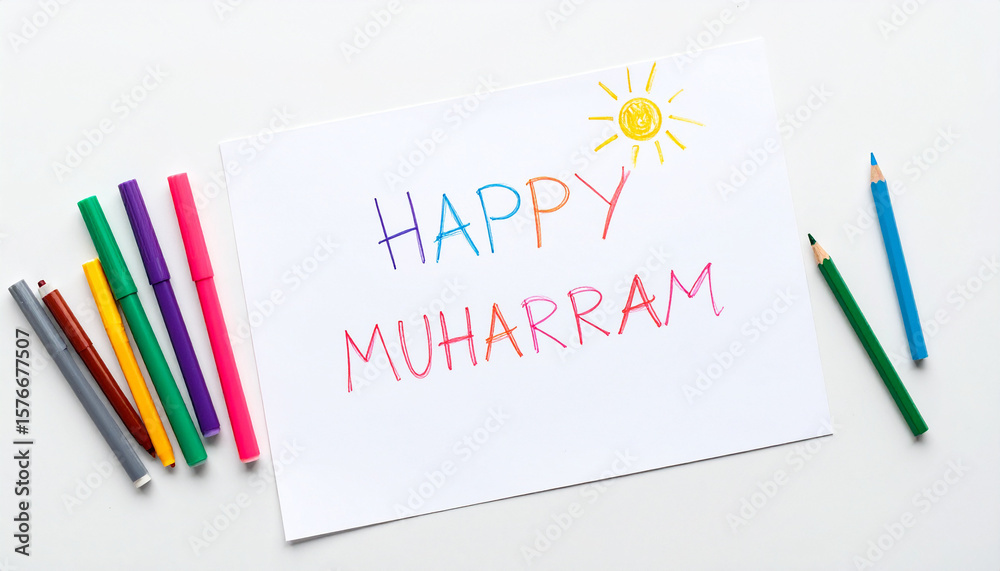 HAPPY
MUHARRAM
Adobe Stock | #1576677507